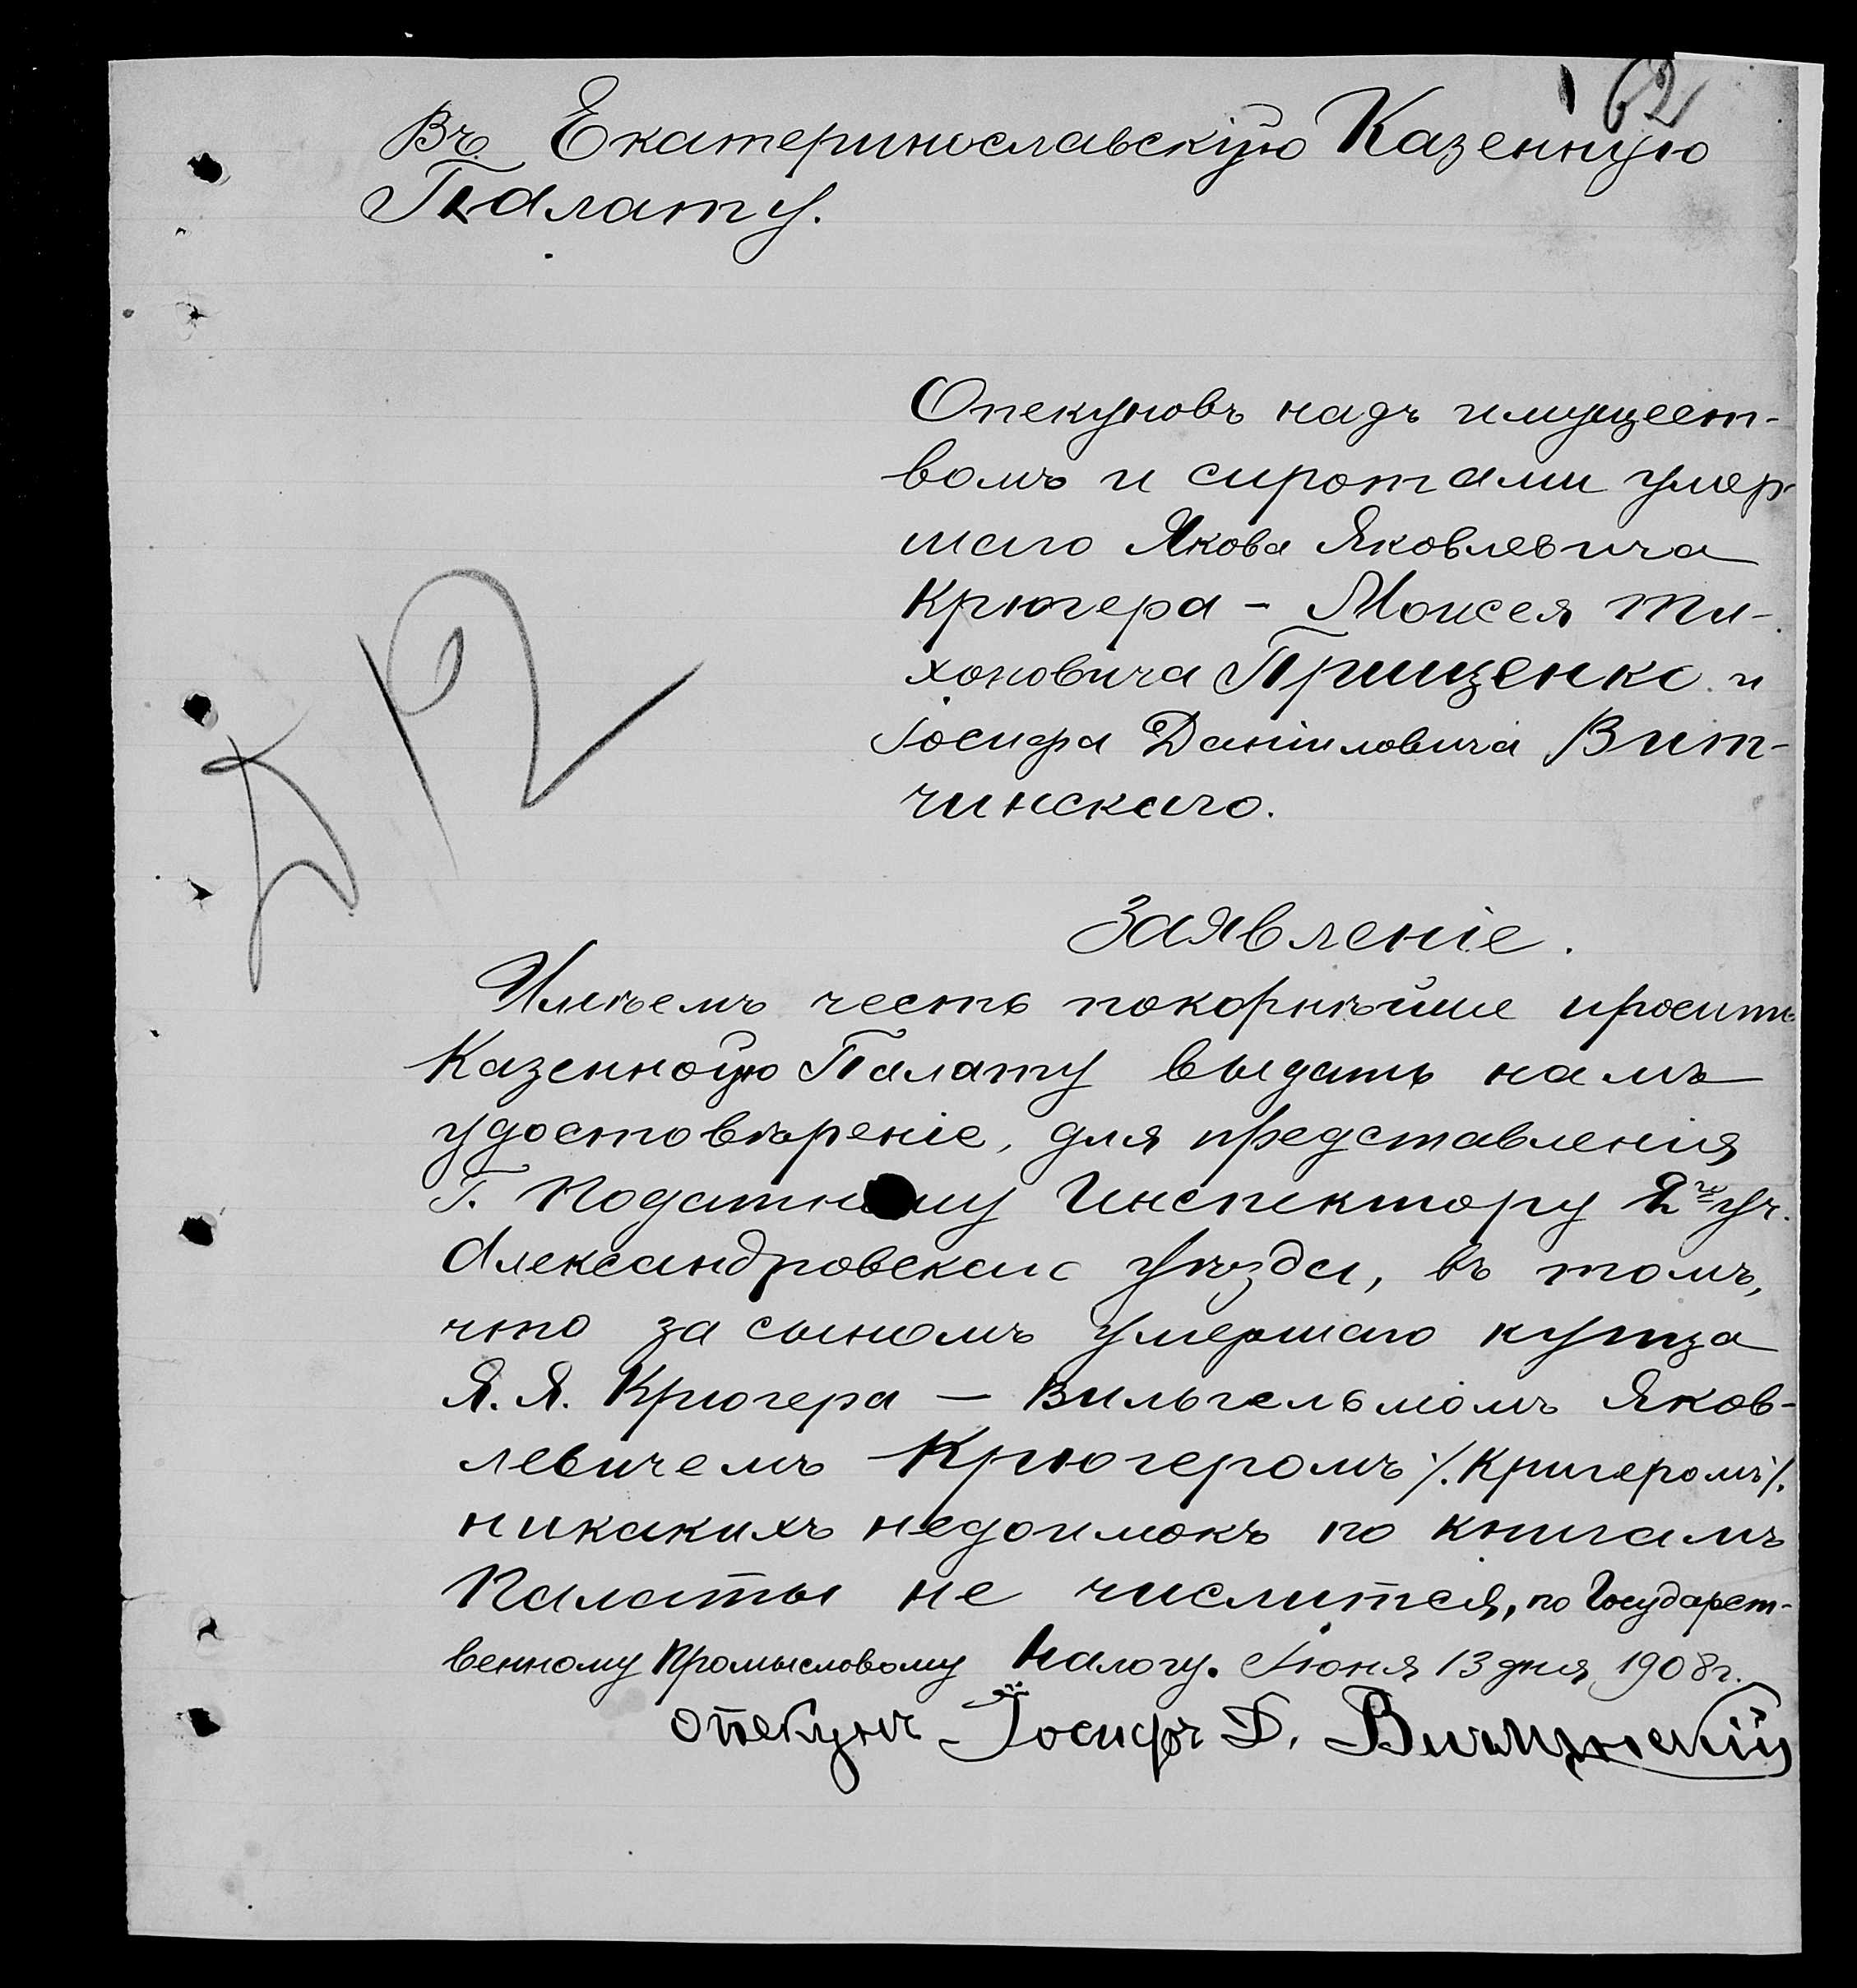 62
Въ Екатеринославскую Казенную
Палату.
Опекуновъ надъ имущест-
вомъ и сиротами умер-
шаго Якова Яковлевича
Крюгера - Моисея Ти-
хоновича Прищенко и
Іосифа Даніиловича Вит-
чинскаго.
Заявленіе.
Имѣемъ честь покорнѣйше просить
Казенную Палату выдать намъ
удостовѣреніе, для представленія
Г. Податному Инспектору 2го уч.
Александровскаго уѣзда, въ томъ,
что за сыномъ умершаго купца
Я. Я. Крюгера — Вильгельмомъ Яков-
левичемъ Крюгеромъ /. Кригеромъ /.
никакихъ недоимокъ по книгамъ
Палаты не числится, по Государст-
венному Промысловому Налогу. Іюня 13 дня 1908 г.
Опекунъ Іосифъ Д. Витчинскій